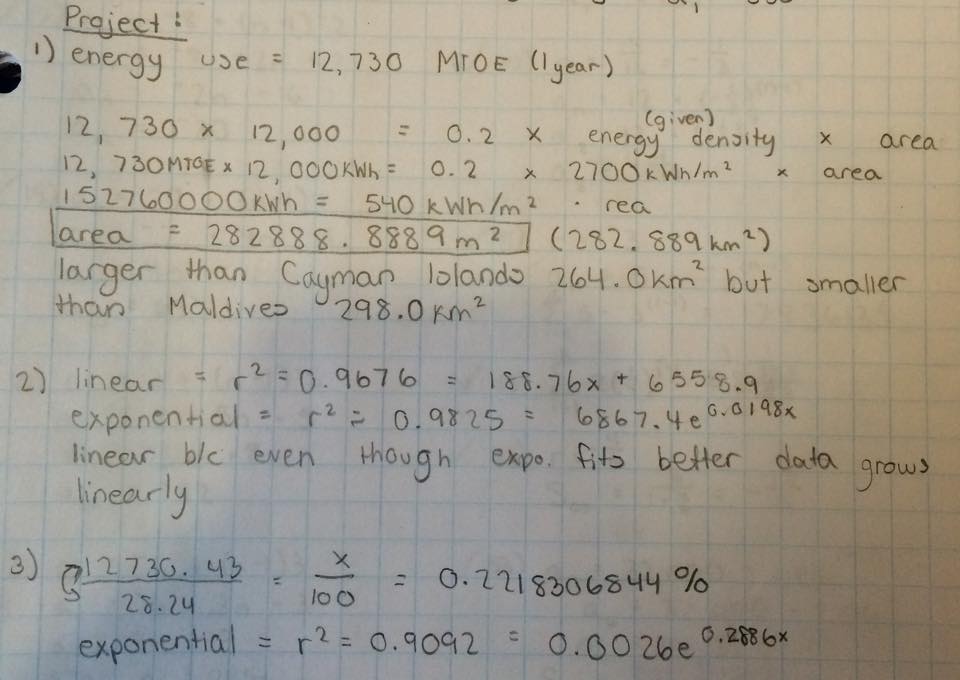 Project :
1) energy use = 12,730 MTOE (1 year)
(given)
12, 730 x 12,000 = 0.2 x energy density x area
12, 730MTOE x 12, 000KWh = 0.2 x 2700kWh/m² x area
152760000KWh = 540 kWh/m² · rea
area = 282888.8889m² (282.889km²)
larger than Cayman Islands 264.0km² but smaller
than Maldives 298.0km²
2) linear = r² = 0.9676 = 188.76x + 6558.9
exponential = r² = 0.9825 = 6867.4e^0.0198x
linear b/c even though expo. fits better data grows
linearly
3) 12730.43 / 28.24 = x / 100 = 0.2218306844%
exponential = r² = 0.9092 = 0.0026e^0.2886x